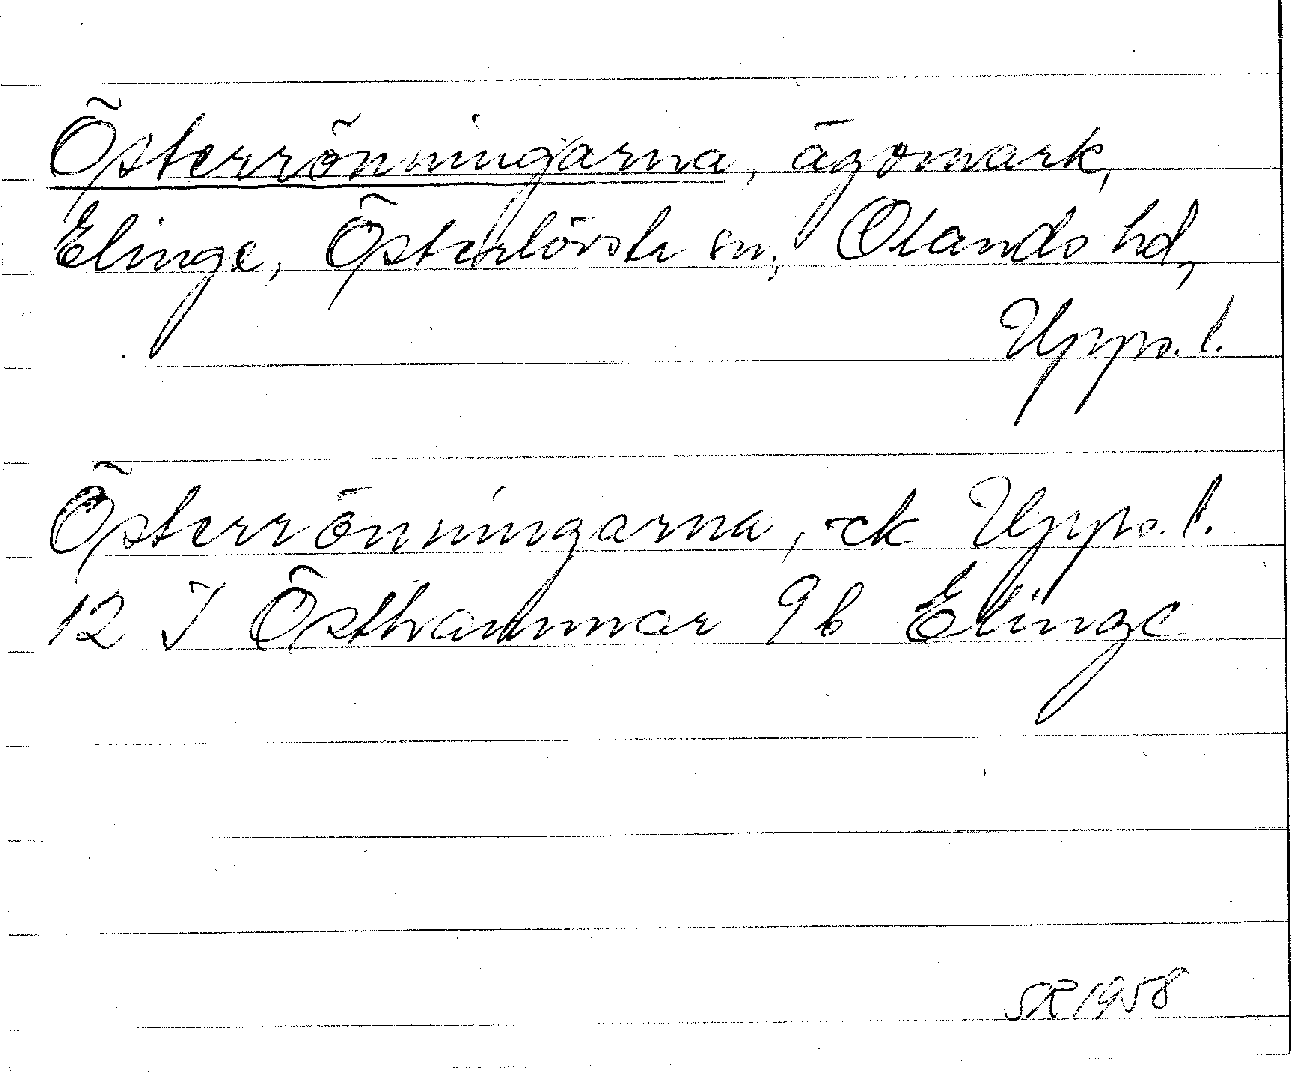 Österrönningarna, ägomark,
Elinge, Österlövsta sn, Olands hd,
Upps. l.
Österrönningarna, -ck Upps. l.
12 I Östhammar 9b Elinge
SR 1958